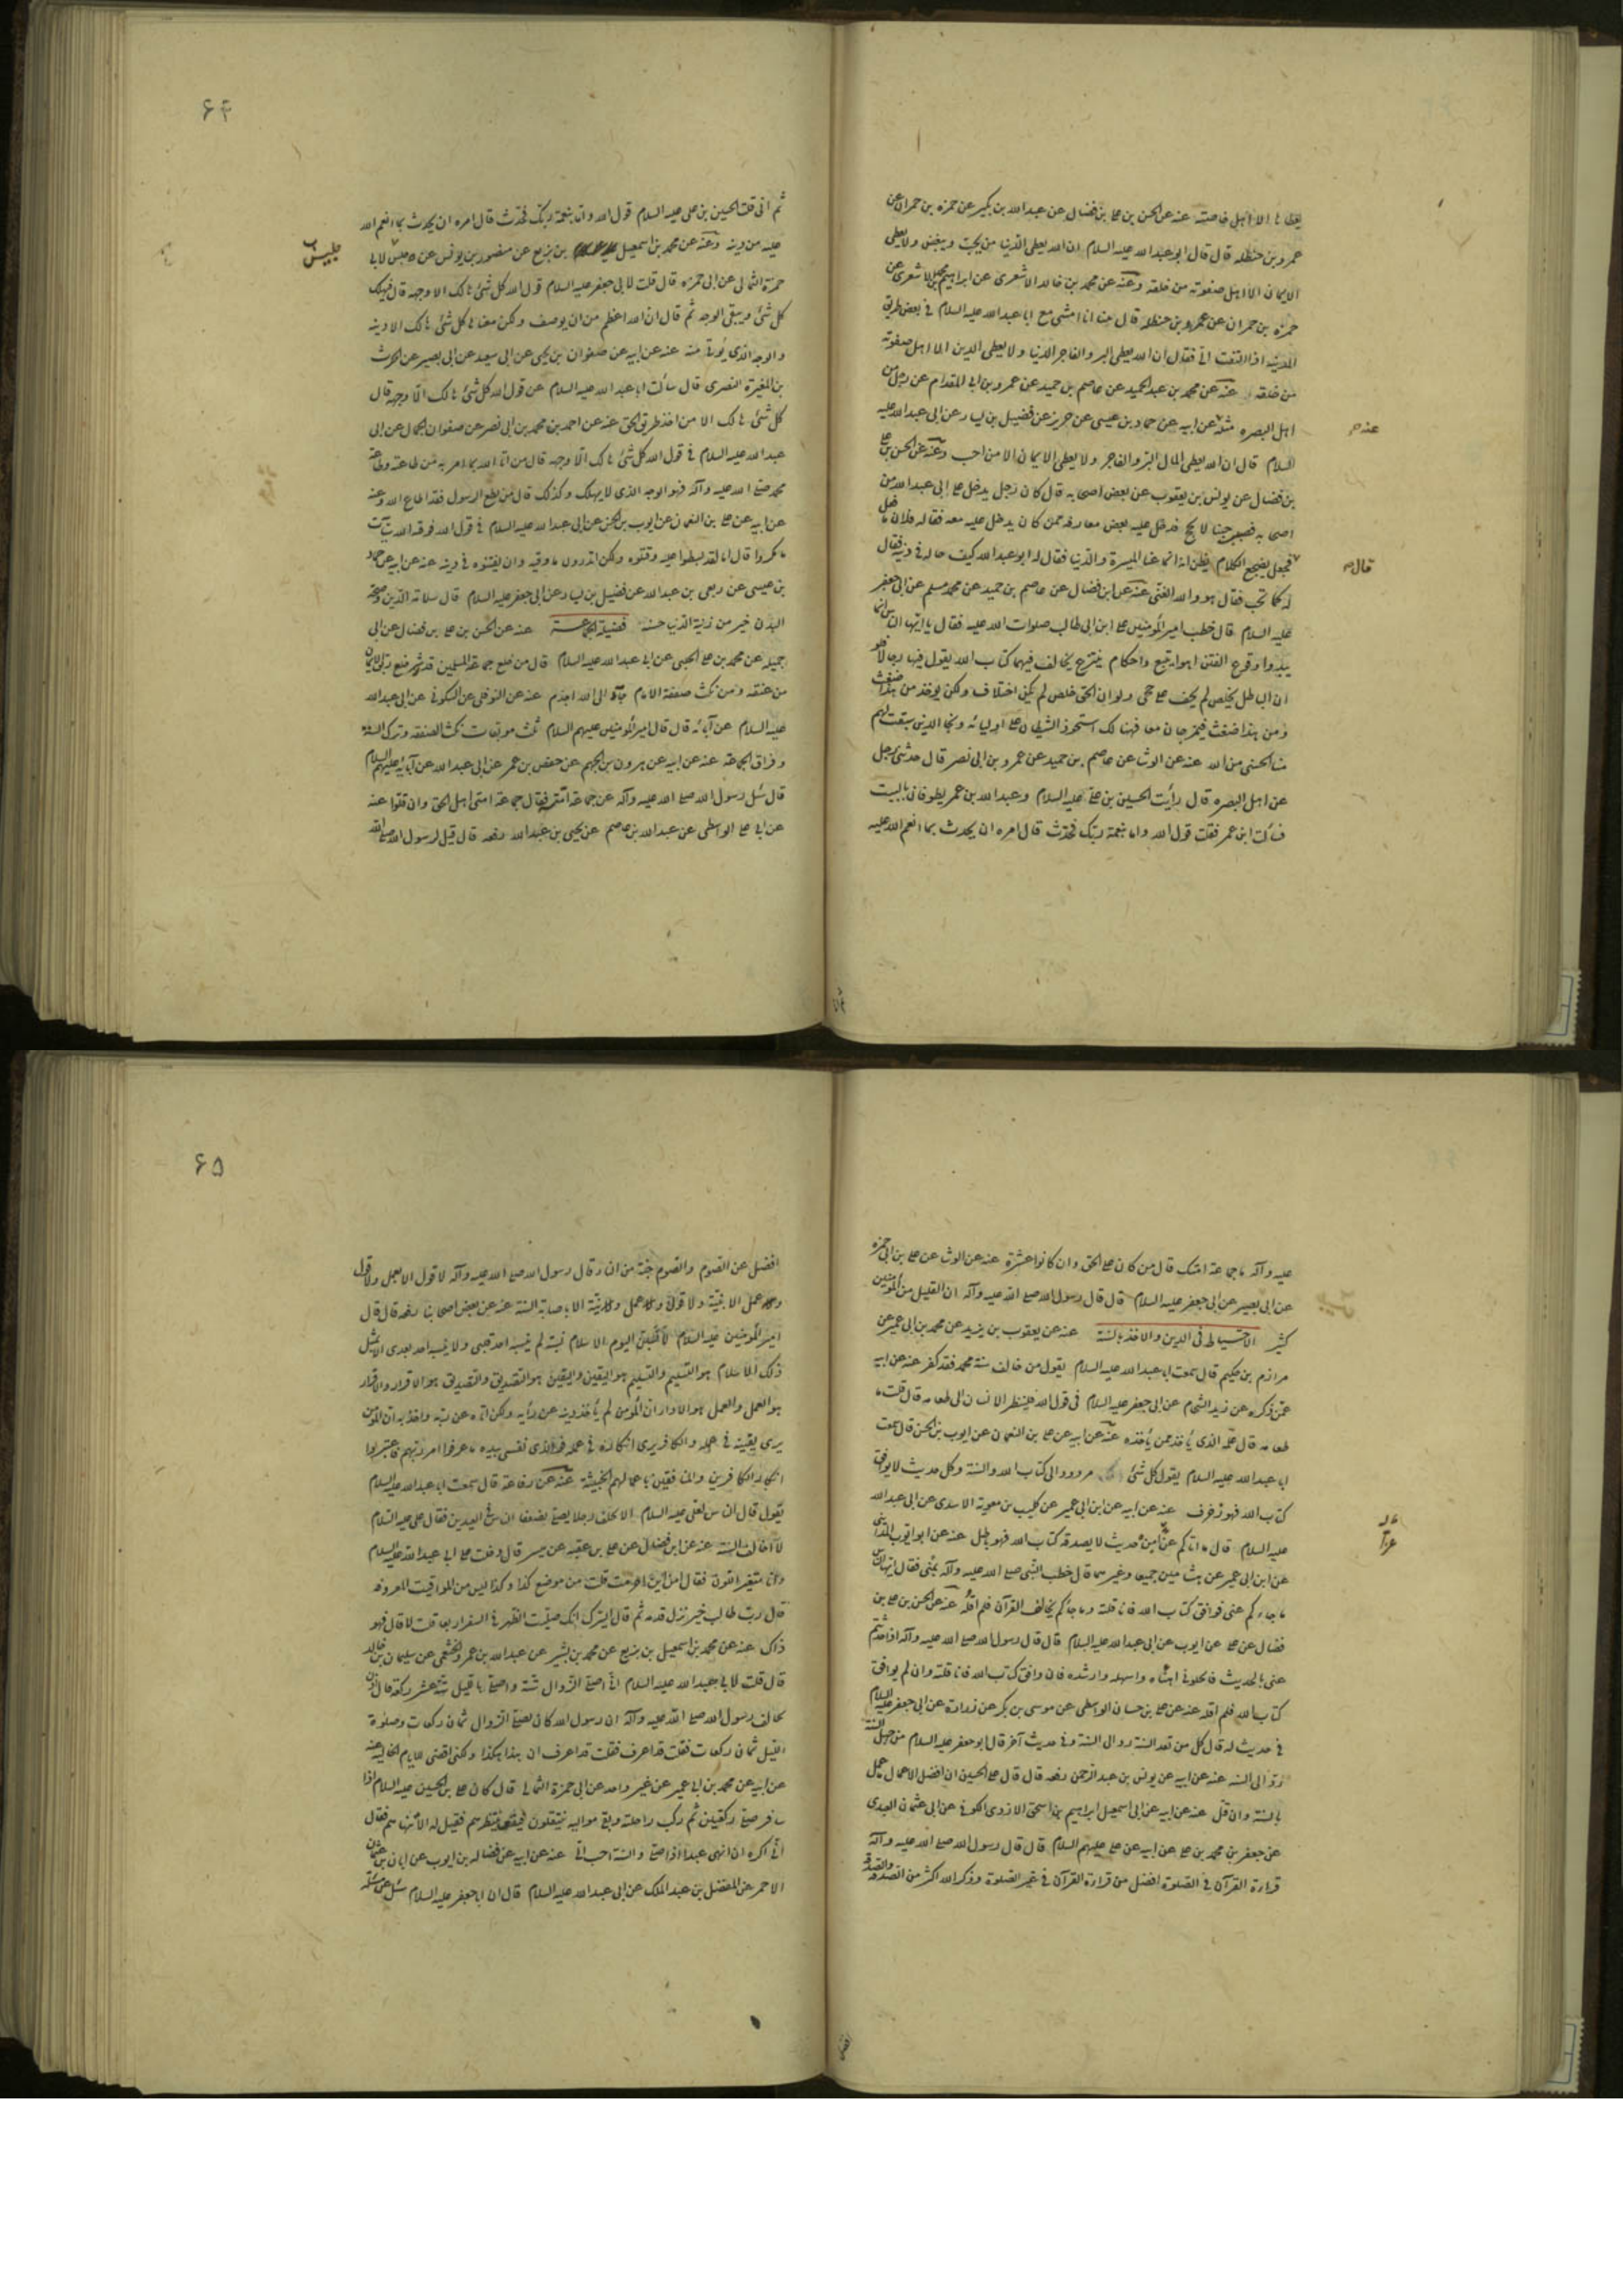 يعطاها الا اهل خاصته عنه عن الحسن بن على بن فضال عن عبدالله بن بكير عن حمزه بن حمران عن
عمرو بن حنظله قال قال ابو عبدالله عليه السلام ان الله يعطى الدنيا من يحب ويبغض ولا يعطى
الايمان الا اهل صفوته من خلقه وعنه عن محمد بن خالد الاشعرى عن ابراهيم بن محمد الاشعرى عن
حمزه بن حمران عن عمرو بن حنظله قال بينا انا امشى مع ابا عبدالله عليه السلام فى بعض طرق
المدينه اذا التفت الى فقال ان الله يعطى البر والفاجر الدنيا ولا يعطى الدين الا اهل صفوته
من خلقه عنه عن محمد بن عبدالحميد عن عاصم بن حميد عن عمرو بن ابى المقدام عن رجل من
اهل البصره مثله عن ابيه عن حماد بن عيسى عن حريز عن فضيل بن يسار عن ابى عبدالله عليه
عنه
السلام قال ان الله يعطى المال البر والفاجر ولا يعطى الايمان الا من احب وعنه عن الحسن بن على
بن فضال عن يونس بن يعقوب عن بعض اصحابه قال كان رجل يدخل على ابى عبدالله من
اصحابه فصبر حينا لا يحج فدخل عليه بعض معارفه ممن كان يدخل عليه معه فقال له فلان ما فعل
قال
فجعل يضجع الكلام يظن انه انما عنا الميسرة والدنيا فقال له ابو عبدالله كيف حاله فى دينه فقال
له كما تحب فقال هو والله الغنى عنه عن ابن فضال عن عاصم بن حميد عن محمد مسلم عن ابى جعفر
عليه السلام قال خطب امير المؤمنين على ابن ابى طالب صلوات الله عليه فقال يا ايها الناس انما
بدؤا وقوع الفتن اهواء تتبع واحكام تبتدع يخالف فيها كتاب الله يقول فيها رجالا فلو
ان الباطل يخلص لم يخف على حجى ولو ان الحق خلص لم يكن اختلاف ولكن يوخذ من هذا ضغث
ومن هذا ضغث فيمزجان معا فهنالك استحوذ الشيطان على اوليائه ونجا الذين سبقت لهم
منا الحسنى من الله عنه عن الوشا عن عاصم بن حميد عن عمرو بن ابى نصر قال حدثنى رجل
عن اهل البصره قال رأيت الحسين بن على عليه السلام وعبدالله بن عمر يطوفان بالبيت
فسألت ابن عمر فقلت قول الله واما بنعمة ربك فحدث قال امره ان يحدث بما انعم الله عليه
۶۴
ثم انى قلت للحسين بن على عليه السلام قول الله واما بنعمة ربك فحدث قال امره ان يحدث بما انعم الله
عليه من دينه وعنه عن محمد بن اسمعيل بن بزيع عن منصور بن يونس عن جلبس لابى
جليس
حمزة الثمالى عن ابى حمزه قال قلت لابى جعفر عليه السلام قول الله كل شئ هالك الا وجهه قال فيهلك
كل شئ ويبقى الوجه ثم قال ان الله اعظم من ان يوصف ولكن معناها كل شئ هالك الا دينه
والوجه الذى يؤتى منه عنه عن ابيه عن صفوان بن يحيى عن ابى سعيد عن ابى بصير عن الحرث
بن المغيرة النصرى قال سألت ابا عبدالله عليه السلام عن قول الله كل شئ هالك الا وجهه قال
كل شئ هالك الا من اخذ طريق الحق عنه عن احمد بن محمد بن ابى نصر عن صفوان الجمال عن ابى
عبدالله عليه السلام فى قول الله كل شئ هالك الا وجهه قال من اتا الله بما امر به من طاعته وطاعة
محمد صلى الله عليه وآله فهو الوجه الذى لا يهلك وكذلك قال من يطع الرسول فقد اطاع الله وعنه
عن ابيه عن على بن النعمان عن ايوب بن الحسن عن ابى عبدالله عليه السلام فى قول الله فوقه الله سيئات
ما مكروا قال اما لقد بسطوا عليه وقتلوه ولكن اتدرون ما وقيه وان يفتنوه فى دينه عنه عن ابيه عن حماد
بن عيسى عن ربعى بن عبدالله عن فضيل بن يسار عن ابى جعفر عليه السلام قال سلامة الدين وصحة
البدن خير من زينة الدنيا حسنة فضيلة الجماعة عنه عن الحسن بن على بن فضال عن ابى
جميله عن محمد بن على الحلبى عن ابى عبدالله عليه السلام قال من خلع جماعة المسلمين قدر شبر خلع ربق الايمان
من عنقه ومن نكث صفقة الامام جاء الى الله اجذم عنه عن النوفلى عن السكونى عن ابى عبدالله
عليه السلام عن آبائه قال قال امير المؤمنين عليهم السلام ثلث موبقات نكث الصفقه وترك السنة
وفراق الجماعة عنه عن ابيه عن هرون بن الجهم عن حفص بن عمر عن ابى عبدالله عن آبائه عليهم السلام
قال سئل رسول الله صلى الله عليه وآله عن جماعة امته فقال جماعة امتى اهل الحق وان قلوا عنه
عن ابى على الواسطى عن عبدالله بن عاصم عن يحيى بن عبدالله رفعه قال قيل لرسول الله صلى الله
عليه وآله ما جماعة امتك قال من كان على الحق وان كانوا عشرة عنه عن الوشا عن على بن ابى حمزه
عن ابى بصير عن ابى جعفر عليه السلام قال قال رسول الله صلى الله عليه وآله ان القليل من المؤمنين
كثير الاحتياط فى الدين والاخذ بالسنة عنه عن يعقوب بن يزيد عن محمد بن ابى عمير عن
مرازم بن حكيم قال سمعت ابا عبدالله عليه السلام يقول من خالف سنة محمد فقد كفر عنه عن ابيه
عمن ذكره عن زيد الشحام عن ابى جعفر عليه السلام فى قول الله فلينظر الانسان الى طعامه قال قلت ما
طعامه قال علمه الذى ياخذ ممن يأخذه عنه عن ابيه عن على بن النعمان عن ايوب بن الحسن قال سمعت
ابا عبدالله عليه السلام يقول كل شئ مردود الى كتاب الله والسنة وكل حديث لا يوافق
كتاب الله فهو زخرف عنه عن ابيه عن ابن ابى عمير عن كليب بن معوية الاسدى عن ابى عبدالله
عليه السلام قال ما اتاكم عنا من حديث لا يصدقه كتاب الله فهو باطل عنه عن ابو ايوب المداينى
عن ابن ابى عمير عن هشامين جميعا وغيرهما قال خطب النبى صلى الله عليه وآله بمنى فقال ايها الناس
ما جاءكم عنى فوافق كتاب الله فانا قلته وما جاءكم يخالف القرآن فلم اقله عنه عن الحسن بن على بن
فضال عن على عن ايوب عن ابى عبدالله عليه السلام قال قال رسول الله صلى الله عليه وآله اذا حدثتم
عنى بالحديث فانحلونى اهناه واسهله وارشده فان وافق كتاب الله فانا قلته وان لم يوافق
كتاب الله فلم اقله عنه عن على بن حسان الواسطى عن موسى بن بكر عن زرارة عن ابى جعفر عليه السلام
فى حديث له قال كل من تعد السنة رد الى السنة وفى حديث آخر قال ابو جعفر عليه السلام من جهل السنة
رد الى السنه عنه عن ابيه عن يونس بن عبد الرحمن رفعه قال قال على الحسين ان افضل الاعمال ما عمل
بالسنة وان قل عنه عن ابيه عن ابى اسمعيل ابراهيم بن اسحق الازدى الكوفى عن ابى عثمان العبدى
عن جعفر بن محمد بن على عن ابيه عن على عليهم السلام قال قال رسول الله صلى الله عليه وآله
قراءة القرآن فى الصلوة افضل من قراءة القرآن فى غير الصلوة وذكر الله اكثر من الصدقة والصدقة
۶۵
افضل عن الصوم والصوم جنة من النار وقال رسول الله صلى الله عليه وآله لا قول الا بعمل ولا قول
وعمل الا بنية ولا قول وعمل ونية الا باصابة السنة عنه عن بعض اصحابنا رفعه قال قال
امير المؤمنين عليه السلام لانسبن اليوم الاسلام نسبة لم ينسبه احد قبلى ولا ينسبه احد بعدى الا بمثل
ذلك الاسلام هو التسليم والتسليم هو اليقين واليقين هو التصديق والتصديق هو الاقرار والاقرار
هو العمل والعمل هو الاداء ان المؤمن لم ياخذ دينه عن رأيه ولكن اتاه عن ربه واخذ به ان المؤمن
يرى يقينه فى عمله والكافر يرى انكاره فى عمله فوالذى نفسى بيده ما عرفوا امر ربهم فاعتبروا
انكار الكافرين والمنافقين باعمالهم الخبيثة عنه عن رفاعة قال سمعت ابا عبدالله عليه السلام
لاخالف السنة عنه عن ابن فضال عن على بن عقبه عن ميسر قال دخلت على ابى عبدالله عليه السلام
وانا متغير اللون فقال لى من اين احرمت قلت من موضع كذا وكذا ليس من المواقيت المعروفه
قال رب طالب خير تزل قدمه ثم قال ايسرك انك صليت الظهر فى السفر اربعا قلت لا قال فهو
ذاك عنه عن محمد بن اسمعيل بن بزيع عن محمد بن بشير عن عبدالله بن عمرو الخثعمى عن سليمان بن خالد
قال قلت لابى عبدالله عليه السلام انى اصلى الزوال ستة واصلى بالليل ستة عشر ركعة قال اذن
تخالف رسول الله صلى الله عليه وآله ان رسول الله كان يصلى الزوال ثمان ركعات وصلوة
الليل ثمان ركعات فقلت قد اعرف فقلت قد اعرف ان هذا هكذا ولكنى اقضى للايام الخاليه عنه
عن ابيه عن محمد بن ابى عمير عن غير واحد عن ابى حمزة الثمالى قال كان على بن الحسين عليه السلام اذا
سافر صلى ركعتين ثم ركب راحلته وبقى مواليه يتنفلون فيقف ينتظرهم فقيل له الا تنهاهم فقال
انى اكره ان انهى عبدا اذا صلى والسنة احب الى عنه عن ابيه عن فضاله بن ايوب عن ابان بن عثمان
الاحمر عن المفضل بن عبد الملك عن ابى عبدالله عليه السلام قال ان ابا جعفر عليه السلام سئل عن مسئلة